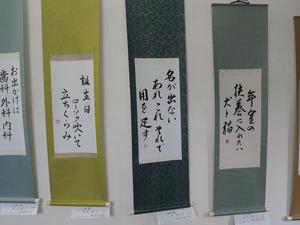 年金の
扶養に入れたい
犬と猫
名が出ない
あれこれそれで
用を足す
誕生日
ローソク吹いて
立ちくらみ
お出かけは
歯科外科内科